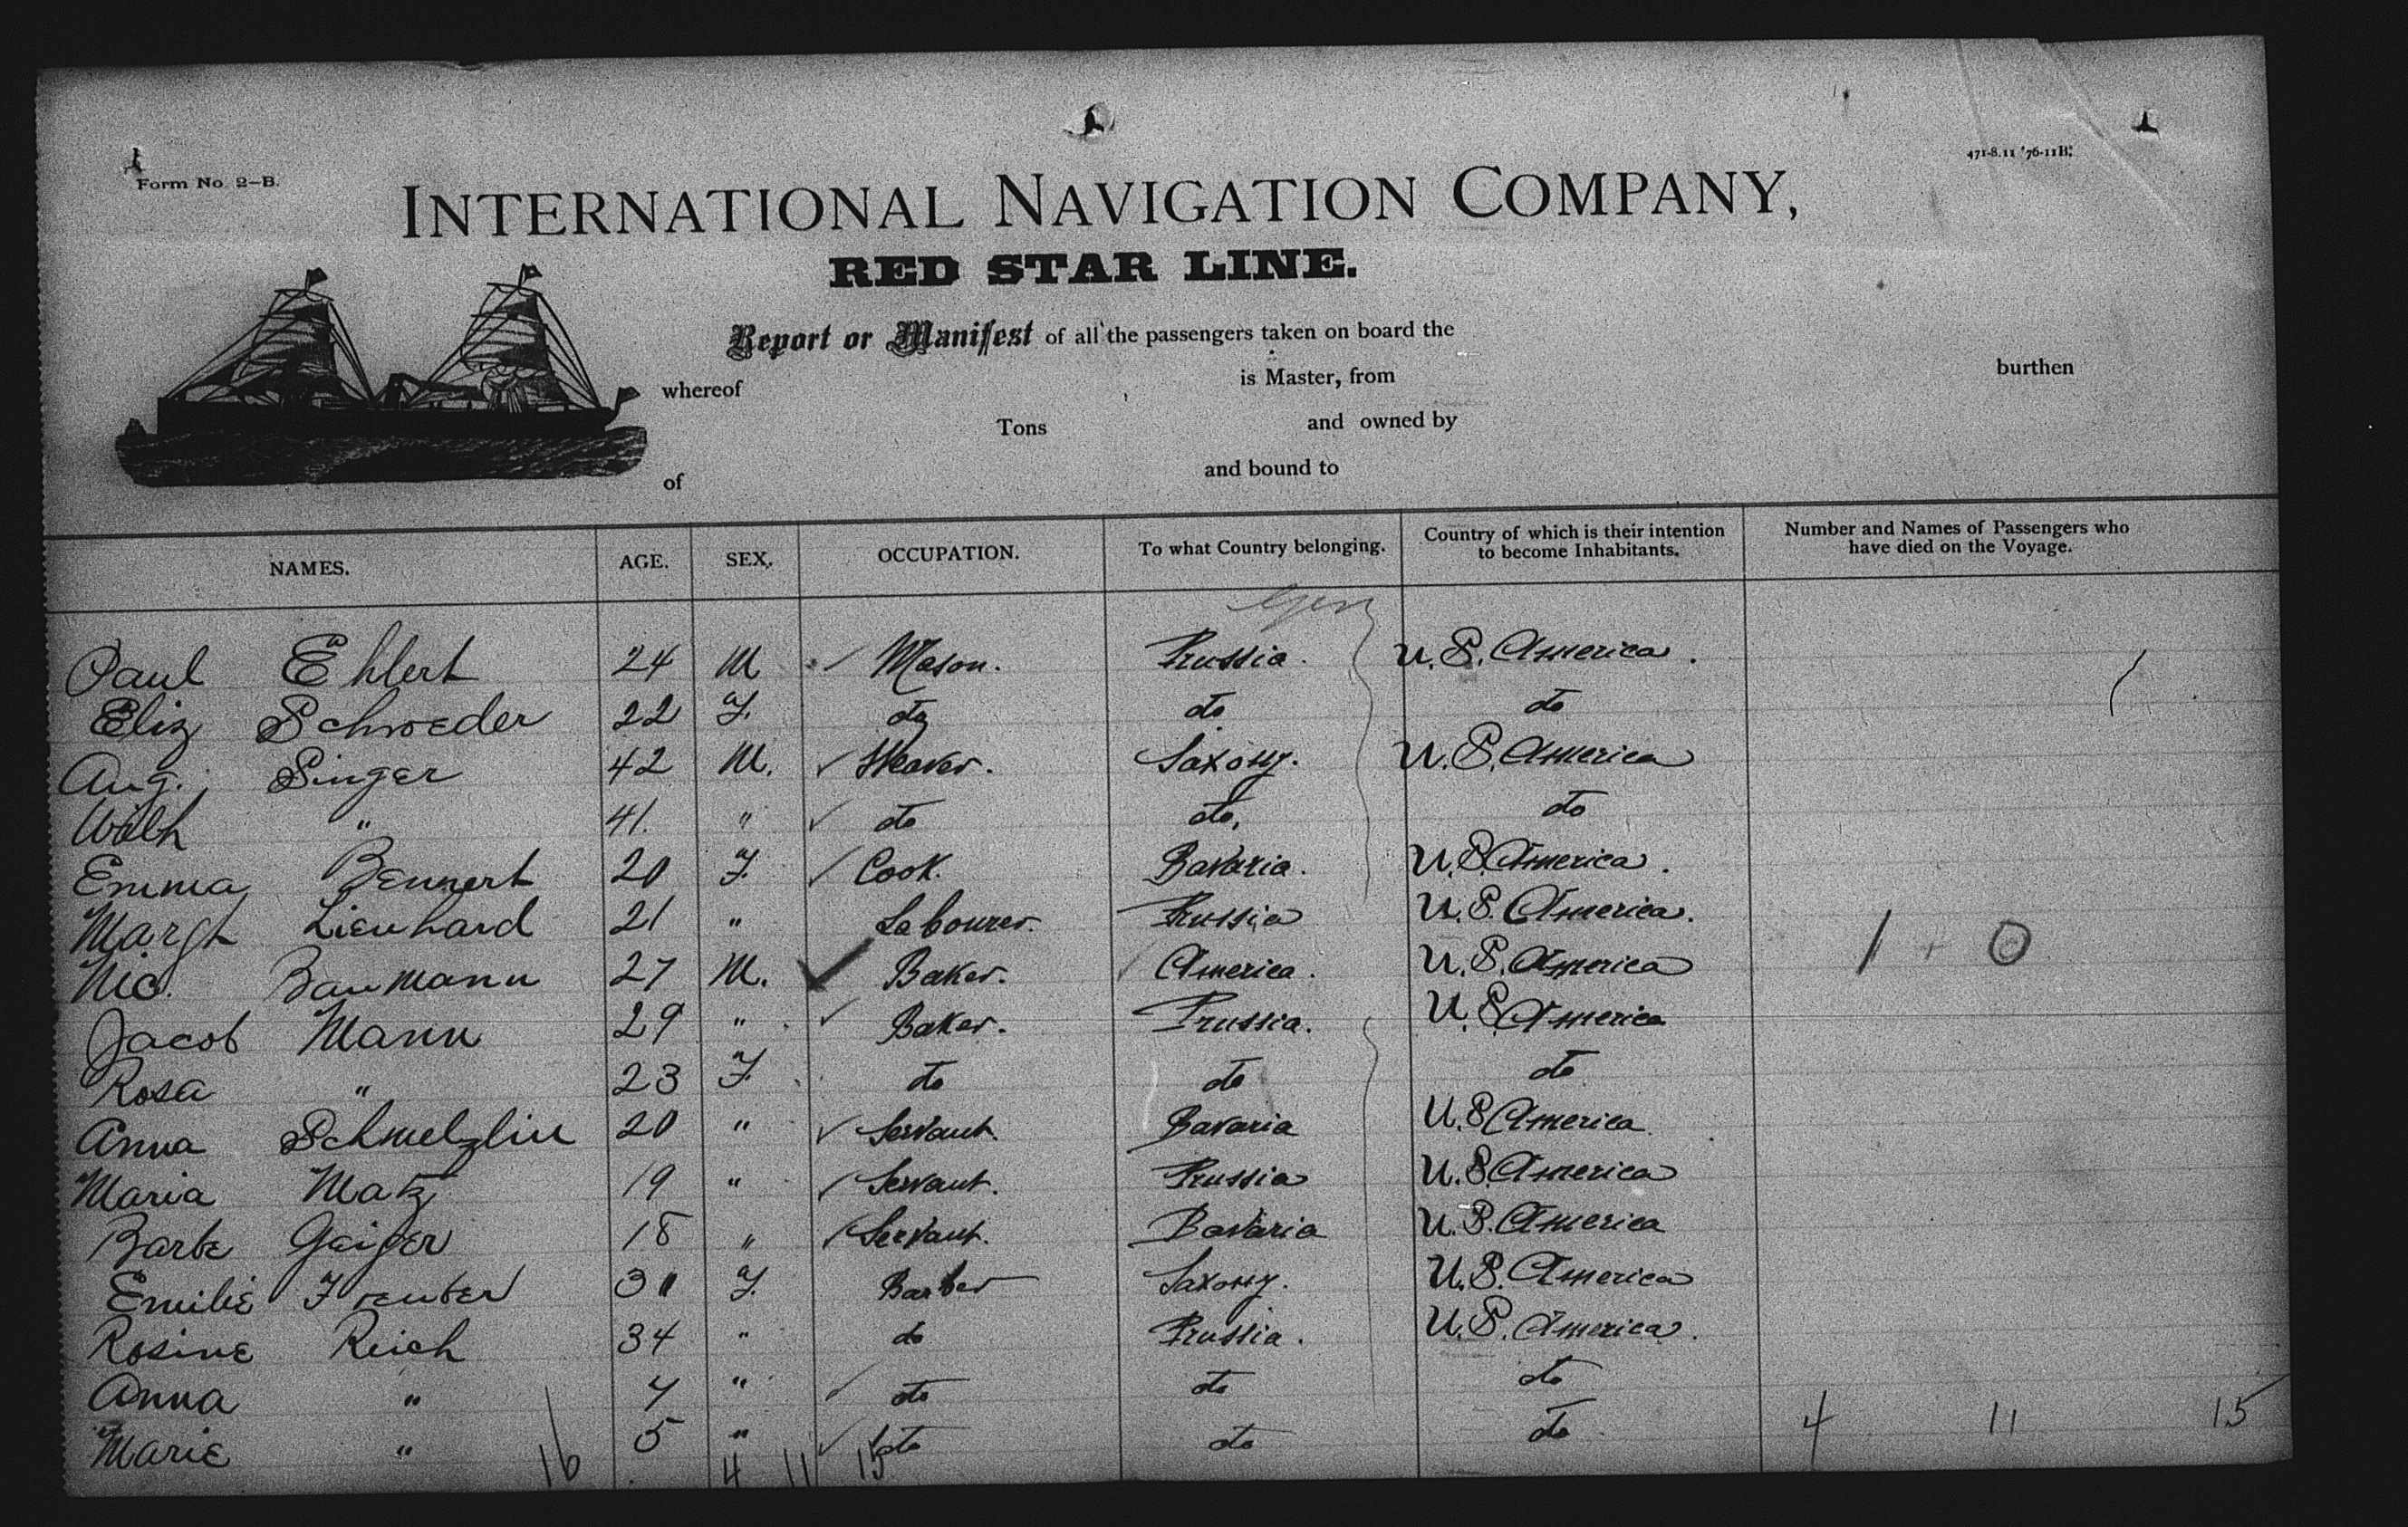 Form No. 2-B.
471-8.11 '76-11B.
INTERNATIONAL NAVIGATION COMPANY,
RED STAR LINE.
Report or Manifest of all the passengers taken on board the
whereof is Master, from burthen
Tons and owned by
of and bound to
NAMES. AGE. SEX. OCCUPATION. To what Country belonging. Country of which is their intention to become Inhabitants. Number and Names of Passengers who have died on the Voyage.
Ger
Paul Ehlert 24 M Mason. Prussia. U.S. America.
Eliz Schroeder 22 F. do do do
Aug. Singer 42 M. Weaver. Saxony. U.S. America
Wilh " 41. " do do. do
Emma Bennert 20 F. Cook. Bavaria. U.S. America.
Margt Lienhard 21 " Labourer. Prussia U.S. America.
Nic. Baumann 27 M. Baker. America. U.S. America 1 + 0
Jacob Mann 29 " Baker. Prussia. U.S. America
Rosa " 23 F. do do do
Anna Schmelzlin 20 " Servant. Bavaria U.S. America
Maria Matz 19 " Servant. Prussia U.S. America
Barbe Geiger 18 " Servant. Bavaria U.S. America
Emilie 30 F. Barber Saxony. U.S. America
Rosine Reich 34 " do Prussia. U.S. America.
Anna " 7 " do do do
Marie " 5 " do do do
4 11 15
16 4 11 15